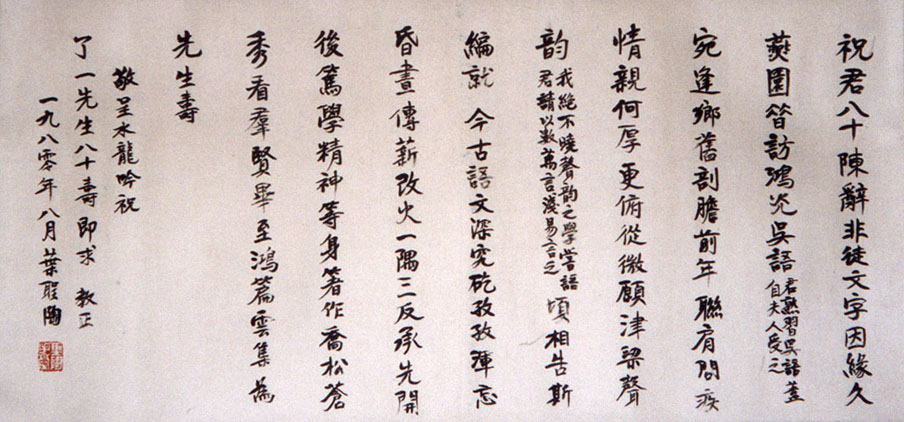 祝君八十陳辭非徒文字因緣久
燕園曾訪鴻光吳語君熟習吳語蓋
自夫人受之
宛逢鄉舊剖膽前年聯肩問疾
情親何厚更俯從微願津梁聲
韵我絕不曉聲韵之學嘗語
君請以數萬言淺易言之頃相告斯
編就 今古語文深究矻孜孜渾忘
昏晝傳薪改火一隅三反承先開
後篤學精神等身著作喬松蒼
秀看羣賢畢至鴻篇雲集為
先生壽
敬呈水龍吟祝
了一先生八十壽即求 教正
一九八零年八月葉聖陶